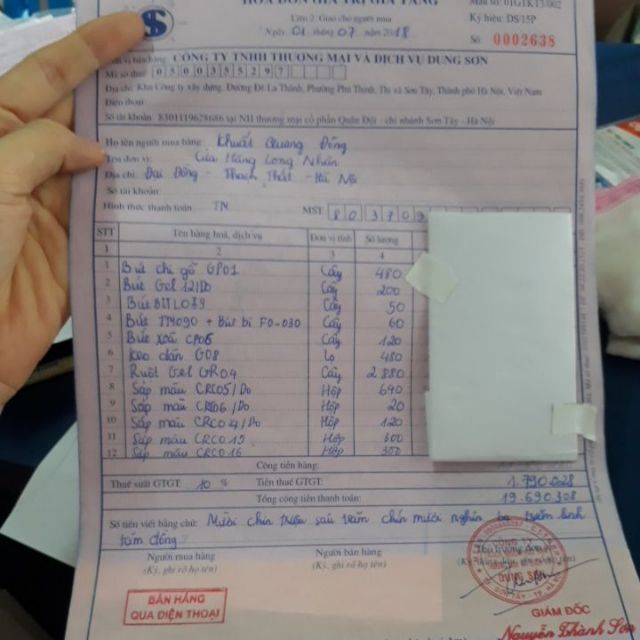 HÓA ĐƠN GIÁ TRỊ GIA TĂNG
Liên 2: Giao cho người mua
Ngày 01 tháng 07 năm 2018
Ký hiệu: DS/15P
Số: 0002638
CÔNG TY TNHH THƯƠNG MẠI VÀ DỊCH VỤ DUNG SƠN
Mã số thuế:
Địa chỉ: Khu Công ty xây dựng, Đường Đê La Thành, Phường Phú Thịnh, Thị xã Sơn Tây, Thành phố Hà Nội, Việt Nam
Điện thoại
Số tài khoản: 8301119628686 tại NH thương mại cổ phần Quân Đội - chi nhánh Sơn Tây - Hà Nội
Họ tên người mua hàng: Khuất Quang Đông
Tên đơn vị: Cửa Hàng Long Nhân
Địa chỉ: Đại Đồng - Thạch Thất - Hà Nội
Số tài khoản:
Hình thức thanh toán: TM MST:
STT Tên hàng hoá, dịch vụ Đơn vị tính Số lượng
1 2 3 4
1 Bút chì gỗ GP01 Cây 480
2 Bút Gel 12/Do Cây 200
3 Bút BM L039 Cây 50
4 Bút TM090 + Bút bi FO-030 Cây 60
5 Bút xoá CP05 Cây 120
6 Keo dán G08 Lọ 480
7 Ruột Gel GR04 Cây 2 880
8 Sáp màu CRC05/Do Hộp 640
9 Sáp màu CRC06/Do Hộp 20
10 Sáp màu CRC04/Do Hộp 120
11 Sáp màu CRC015 Hộp 300
12 Sáp màu CRC016 Hộp 300
Cộng tiền hàng:
Thuế suất GTGT: 10 % Tiền thuế GTGT: 1.790.028
Tổng cộng tiền thanh toán: 19.690.308
Số tiền viết bằng chữ: Mười chín triệu sáu trăm chín mươi nghìn ba trăm linh
tám đồng
Người mua hàng Người bán hàng
(Ký, ghi rõ họ tên) (Ký, ghi rõ họ tên)
BÁN HÀNG
QUA ĐIỆN THOẠI
GIÁM ĐỐC
Nguyễn Thành Sơn